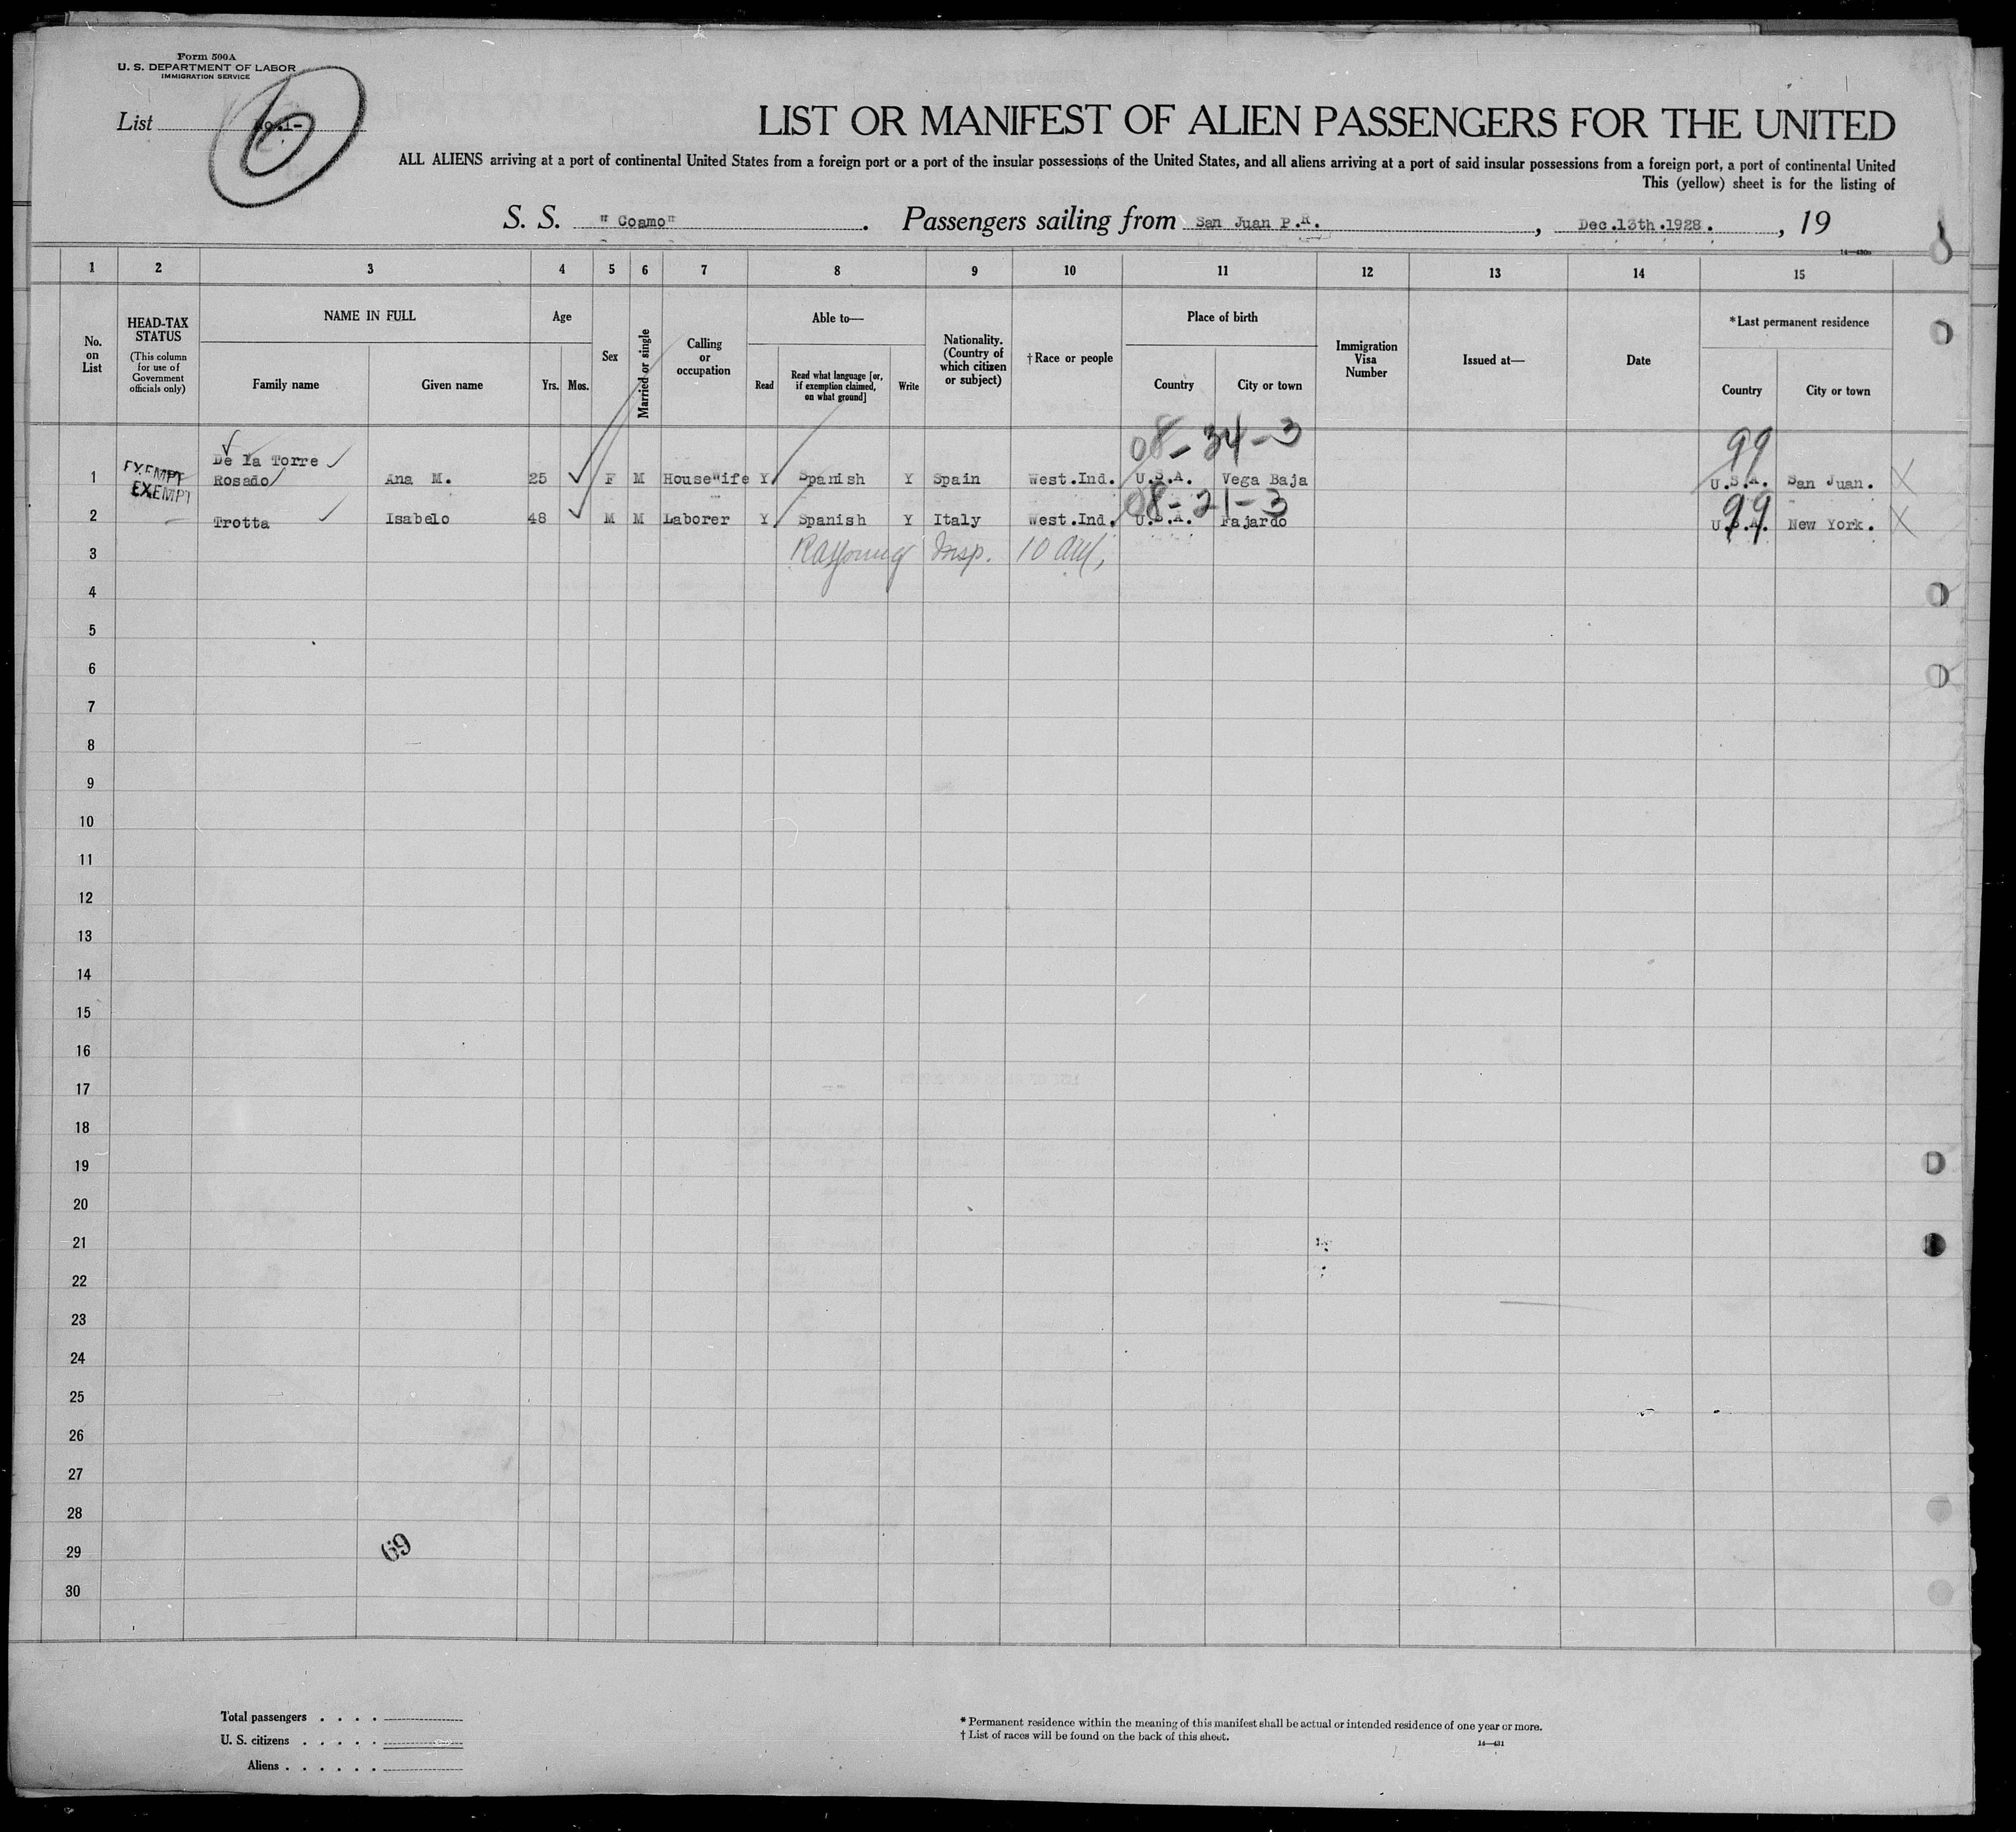 Form 500A
U. S. DEPARTMENT OF LABOR
IMMIGRATION SERVICE
List
6
LIST OR MANIFEST OF ALIEN PASSENGERS FOR THE UNITED
ALL ALIENS arriving at a port of continental United States from a foreign port or a port of the insular possessions of the United States, and all aliens arriving at a port of said insular possessions from a foreign port, a port of continental United
This (yellow) sheet is for the listing of
S. S. "Coamo". Passengers sailing from San Juan P.R., Dec.13th.1928., 19
1 2 3 4 5 6 7 8 9 10 11 12 13 14 15
No. on List
HEAD-TAX STATUS
(This column for use of Government officials only)
NAME IN FULL
Family name Given name
Age
Yrs. Mos.
Sex
Married or single
Calling or occupation
Able to—
Read
Read what language [or, if exemption claimed, on what ground]
Write
Nationality. (Country of which citizen or subject)
†Race or people
Place of birth
Country City or town
Immigration Visa Number
Issued at—
Date
*Last permanent residence
Country City or town
08-34-3 99
De la Torre
1 EXEMPT Rosado Ana M. 25 F M Housewife Y Spanish Y Spain West.Ind. U.S.A. Vega Baja U.S.A. San Juan. X
EXEMPT
08-21-3 99
2 Trotta Isabelo 48 M M Laborer Y Spanish Y Italy West.Ind. U.S.A. Fajardo U.S.A. New York. X
3 Insp.
4
5
6
7
8
9
10
11
12
13
14
15
16
17
18
19
20
21
22
23
24
25
26
27
28
29
69
30
Total passengers . . . .
U. S. citizens . . . . .
Aliens . . . . . .
* Permanent residence within the meaning of this manifest shall be actual or intended residence of one year or more.
† List of races will be found on the back of this sheet.
14—431